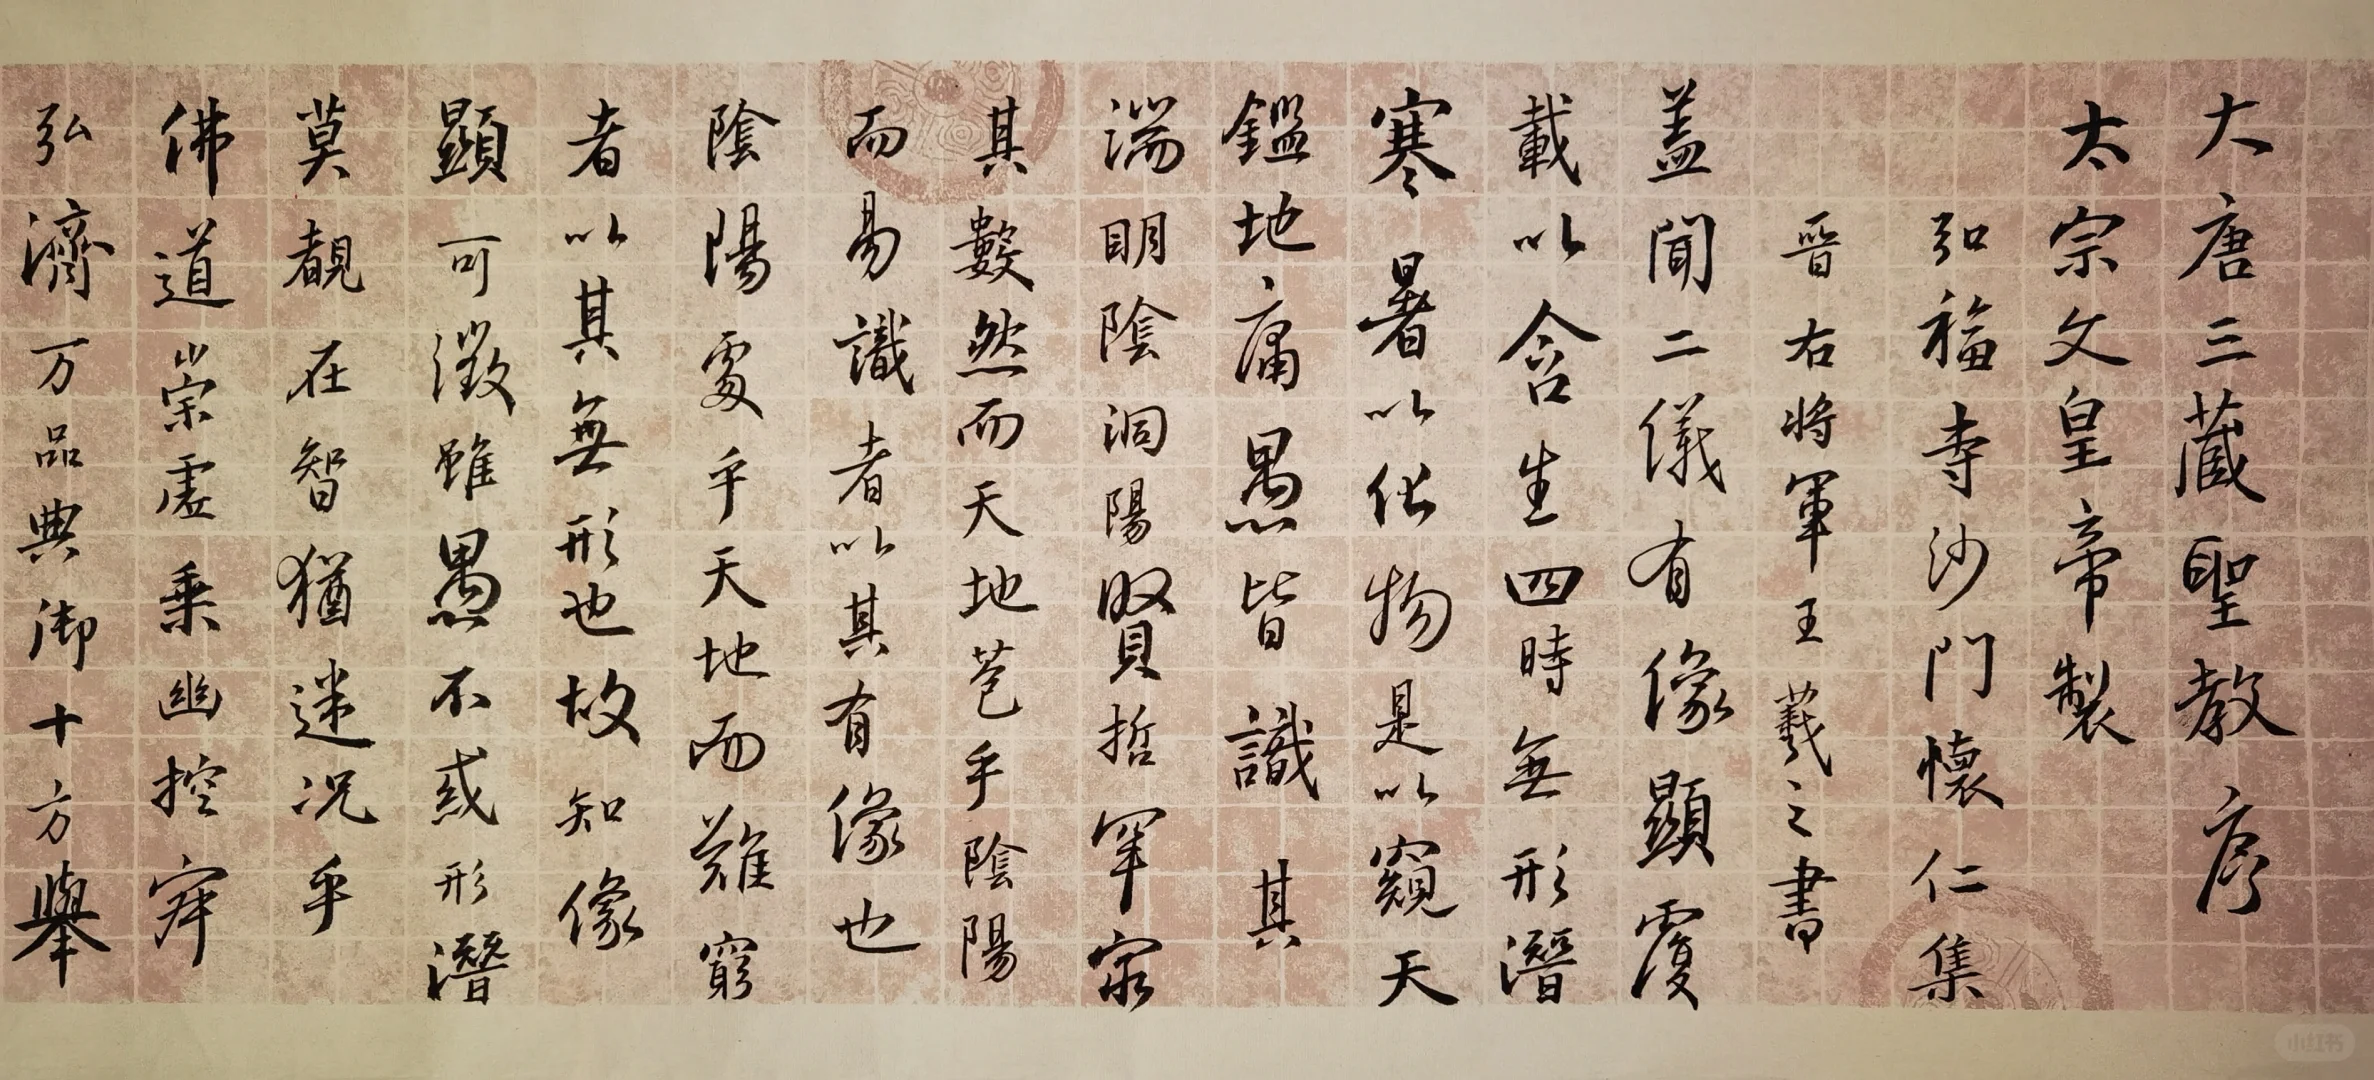 大唐三藏聖教序
太宗文皇帝製
弘福寺沙門懷仁集
晉右将軍王羲之書
蓋聞二儀有像顯覆
載以含生四時無形潛
寒暑以化物是以窺天
鑑地庸愚皆識其
端明陰洞陽賢哲罕窮
其數然而天地苞乎陰陽
而易識者以其有像也
陰陽處乎天地而難窮
者以其無形也故知像
顯可徵雖愚不惑形潛
莫覩在智猶迷况乎
佛道崇虛乗幽控寂
弘濟万品典御十方舉
小红书